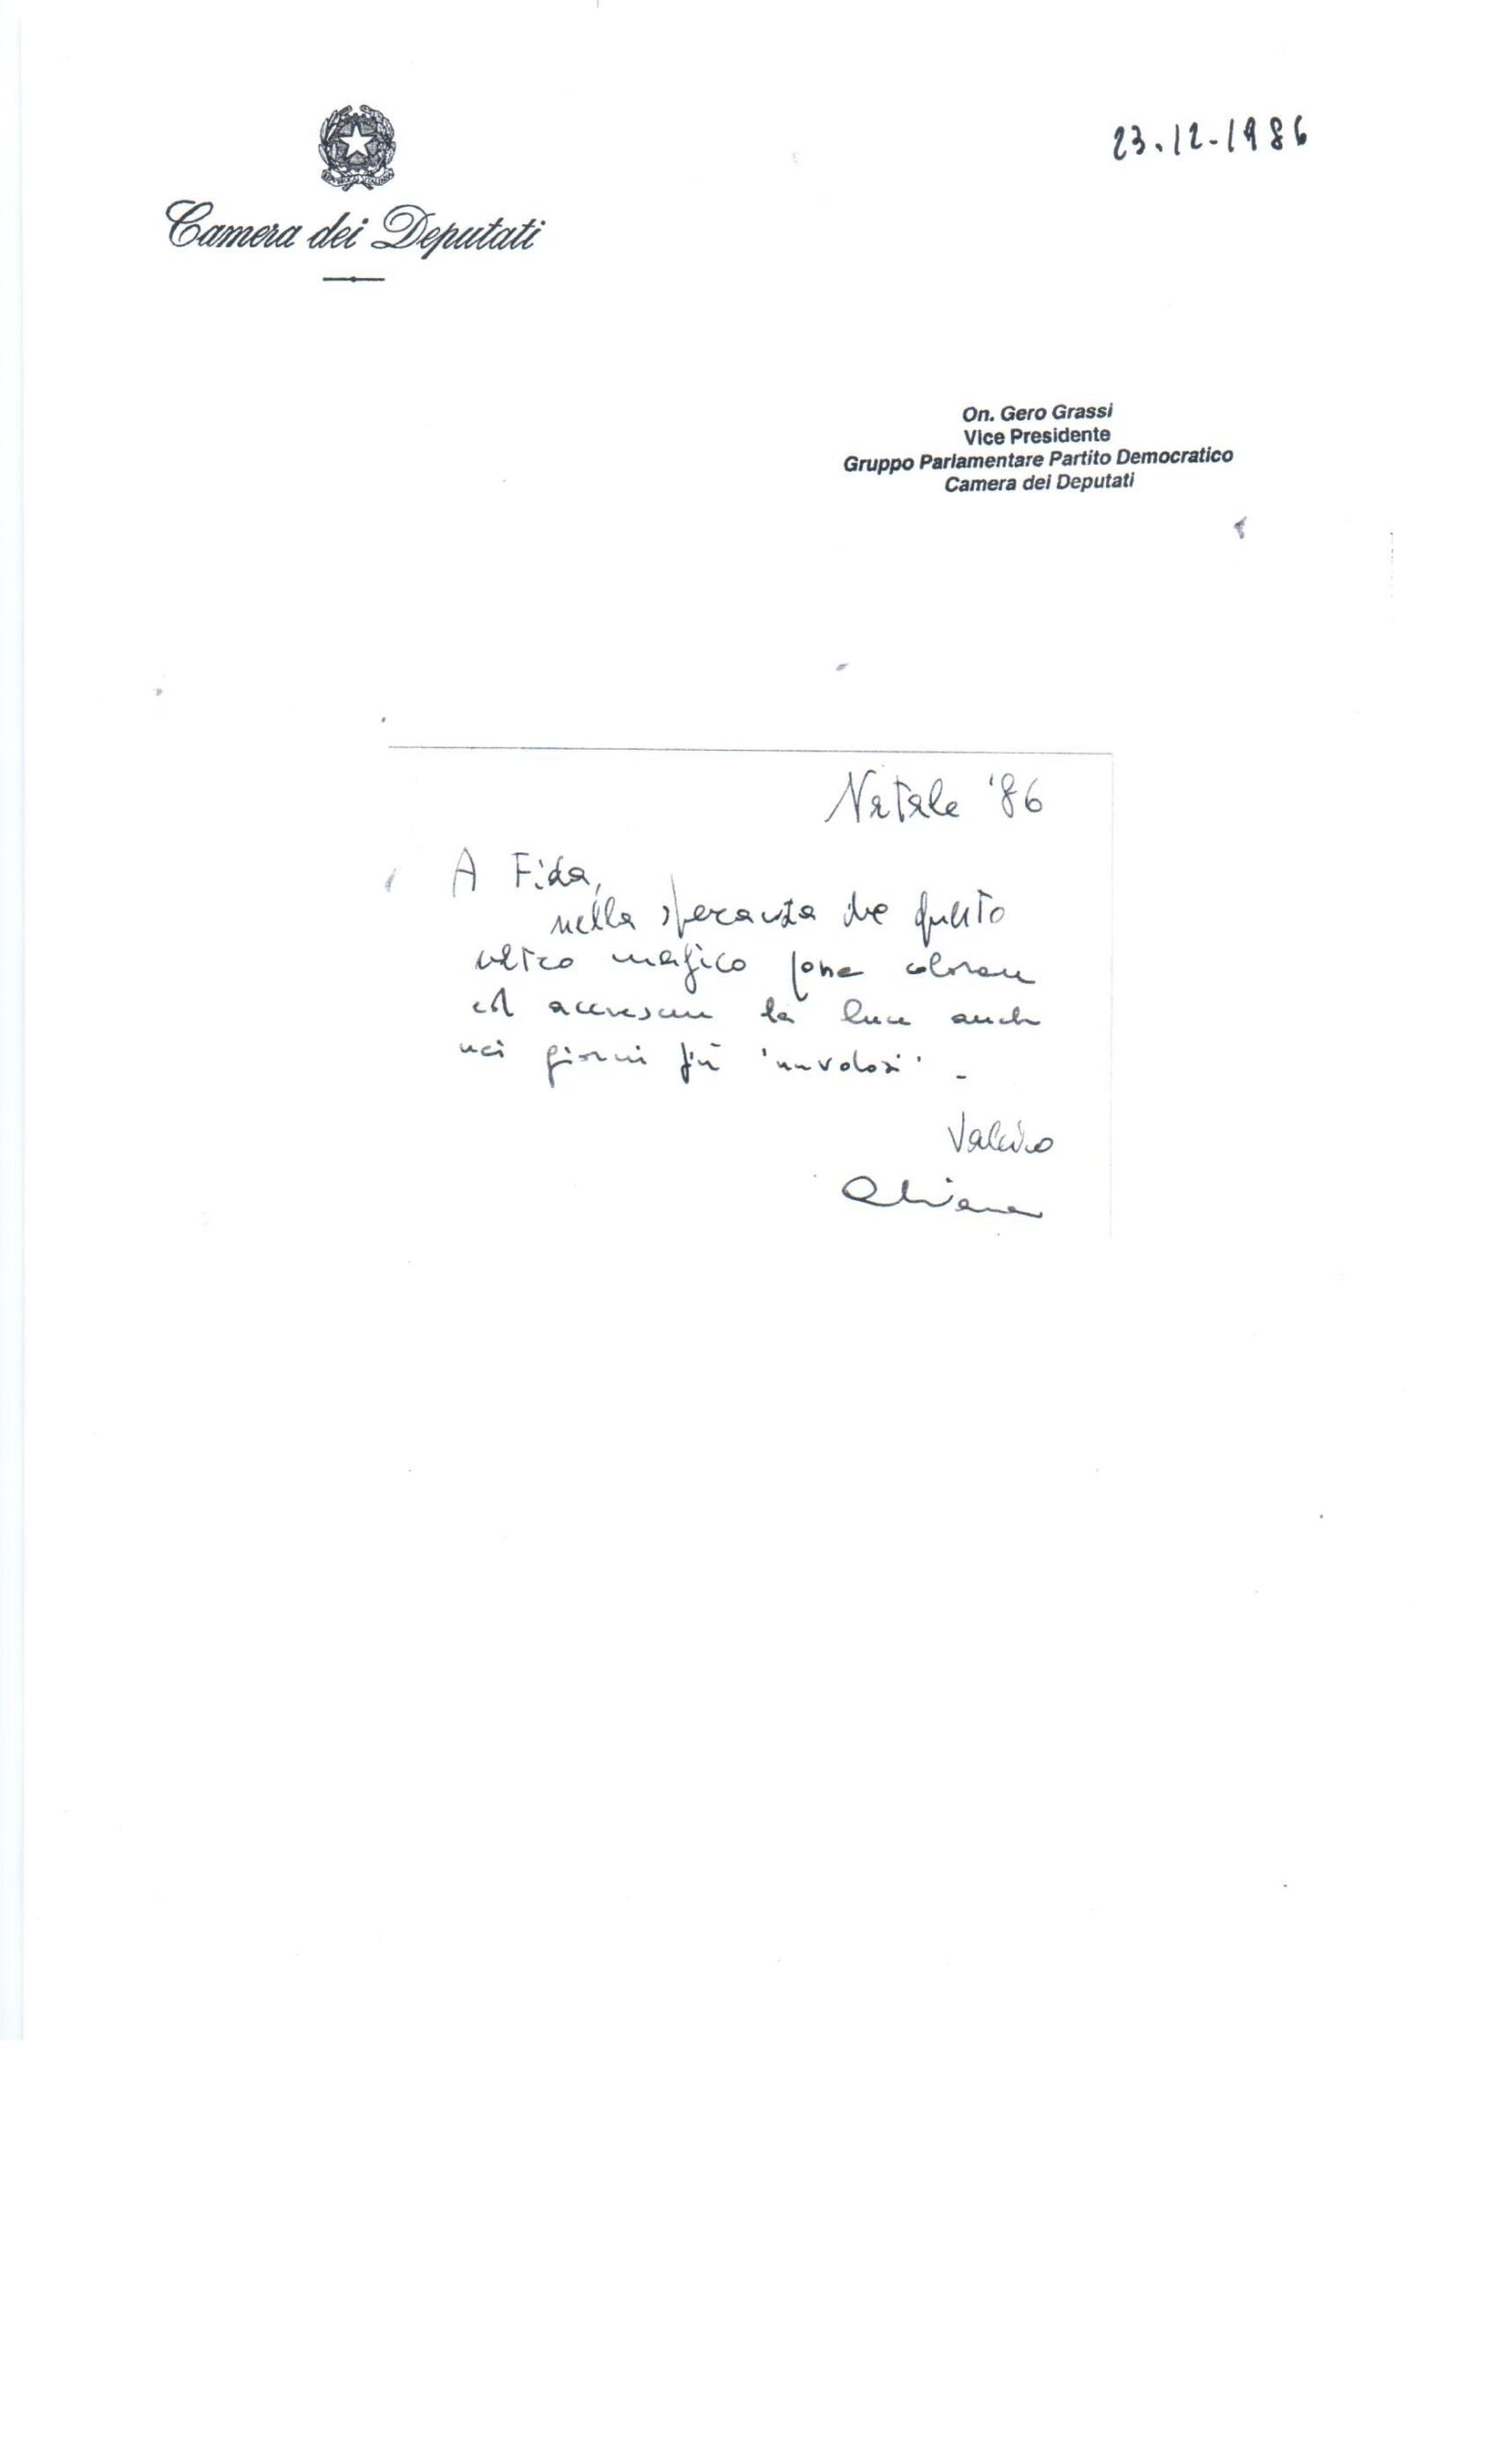 23.12-1986
Camera dei Deputati
On. Gero Grassi
Vice Presidente
Gruppo Parlamentare Partito Democratico
Camera dei Deputati
Natale '86
A Fida,
nella speranza che questo
vetro magico possa colorare
ed accrescere la luce anche
nei giorni più 'nuvolosi'.-
Valerio
Chiara